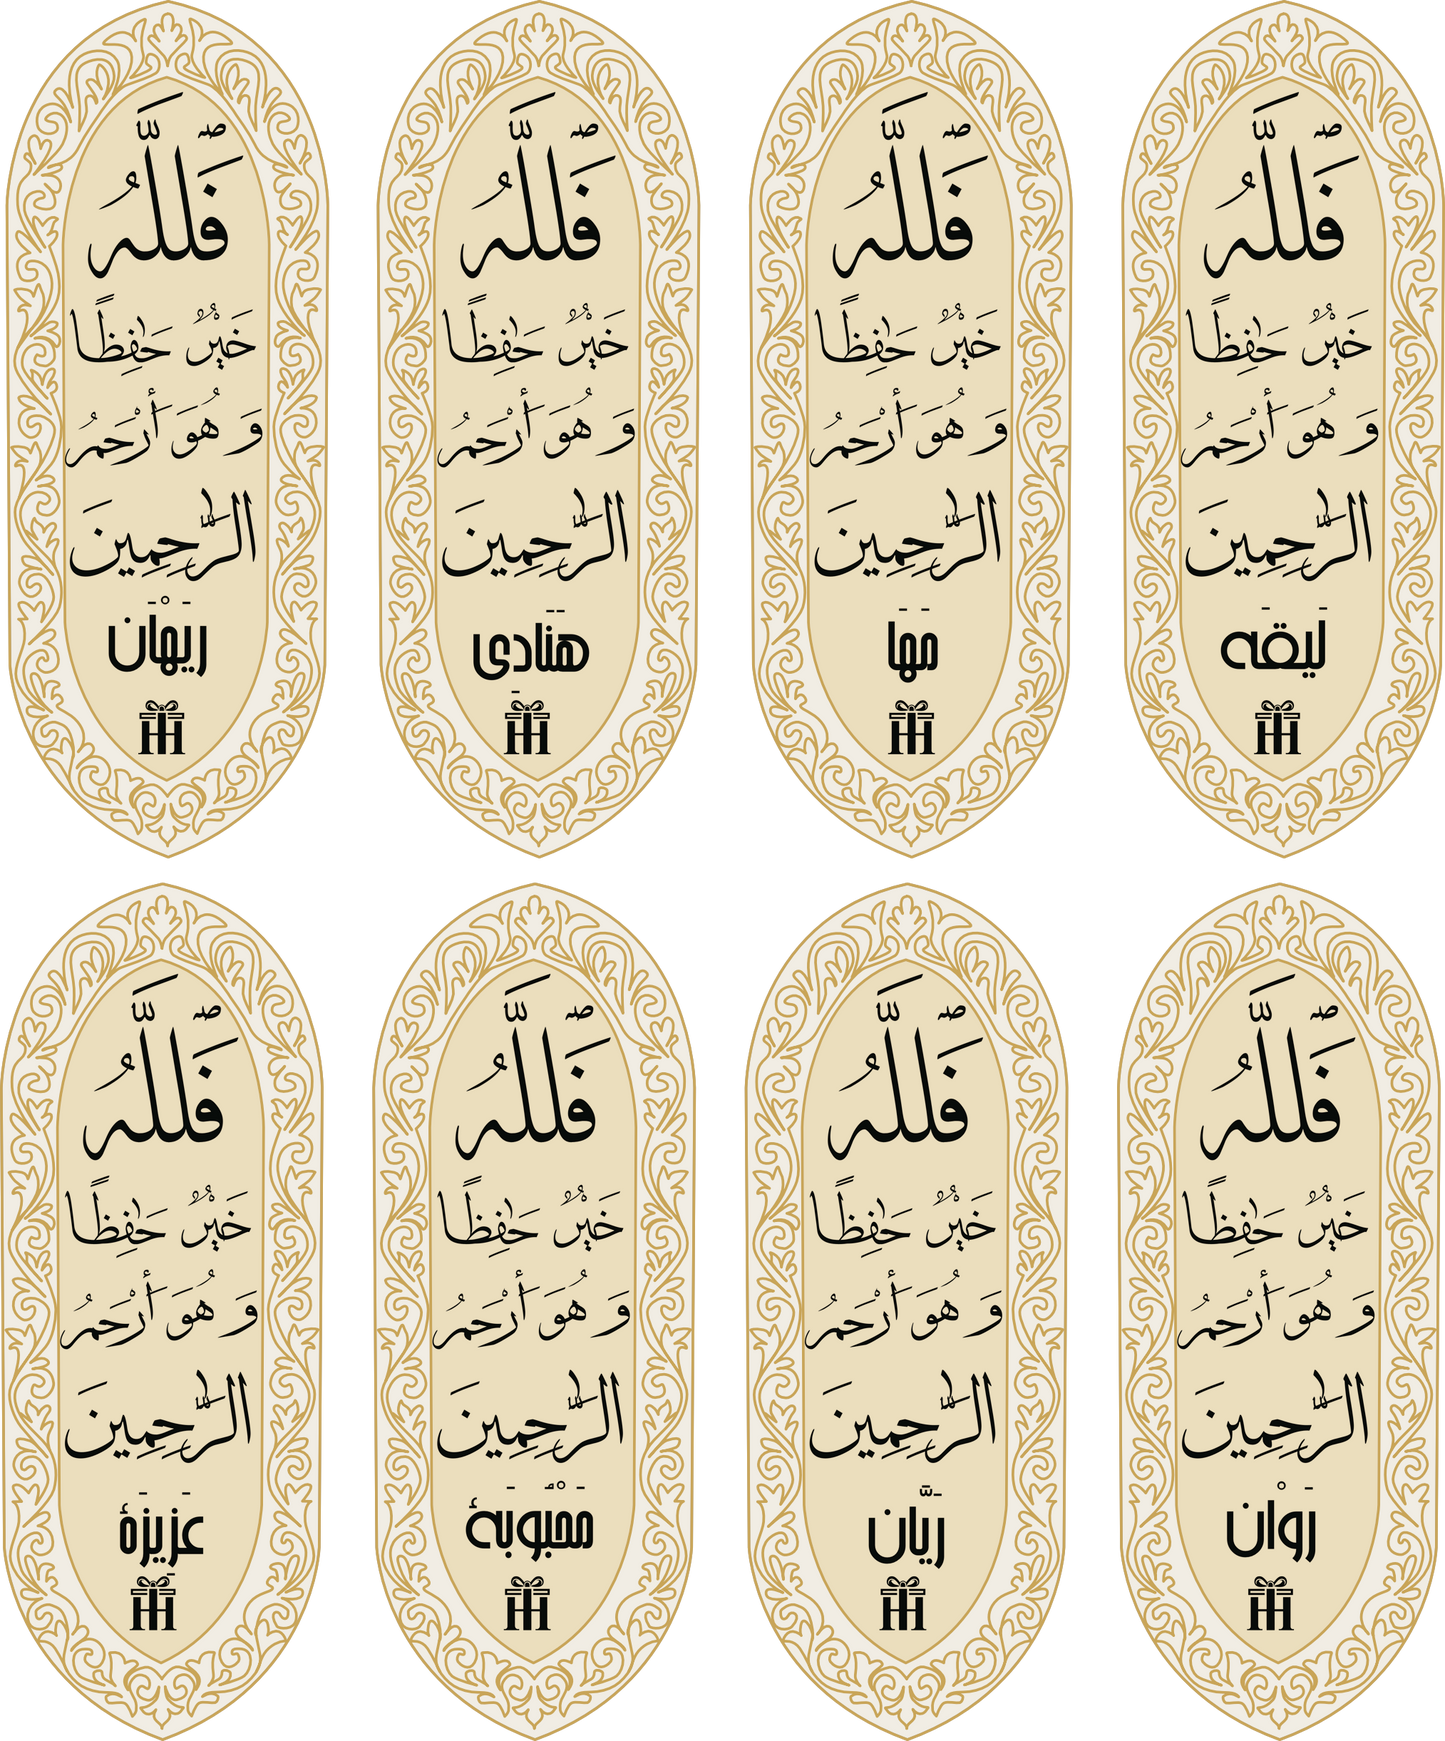 فَٱللَّهُ
خَيْرٌ حَٰفِظًا
وَ هُوَ أَرْحَمُ
ٱلرَّٰحِمِينَ
لَيقَه
فَٱللَّهُ
خَيْرٌ حَٰفِظًا
وَ هُوَ أَرْحَمُ
ٱلرَّٰحِمِينَ
مَهَا
فَٱللَّهُ
خَيْرٌ حَٰفِظًا
وَ هُوَ أَرْحَمُ
ٱلرَّٰحِمِينَ
هَنَادِی
فَٱللَّهُ
خَيْرٌ حَٰفِظًا
وَ هُوَ أَرْحَمُ
ٱلرَّٰحِمِينَ
رَيْهَان
فَٱللَّهُ
خَيْرٌ حَٰفِظًا
وَ هُوَ أَرْحَمُ
ٱلرَّٰحِمِينَ
رَوْان
فَٱللَّهُ
خَيْرٌ حَٰفِظًا
وَ هُوَ أَرْحَمُ
ٱلرَّٰحِمِينَ
رَيَّان
فَٱللَّهُ
خَيْرٌ حَٰفِظًا
وَ هُوَ أَرْحَمُ
ٱلرَّٰحِمِينَ
مَحْبُوبَهٔ
فَٱللَّهُ
خَيْرٌ حَٰفِظًا
وَ هُوَ أَرْحَمُ
ٱلرَّٰحِمِينَ
عَزِيزَهٔ